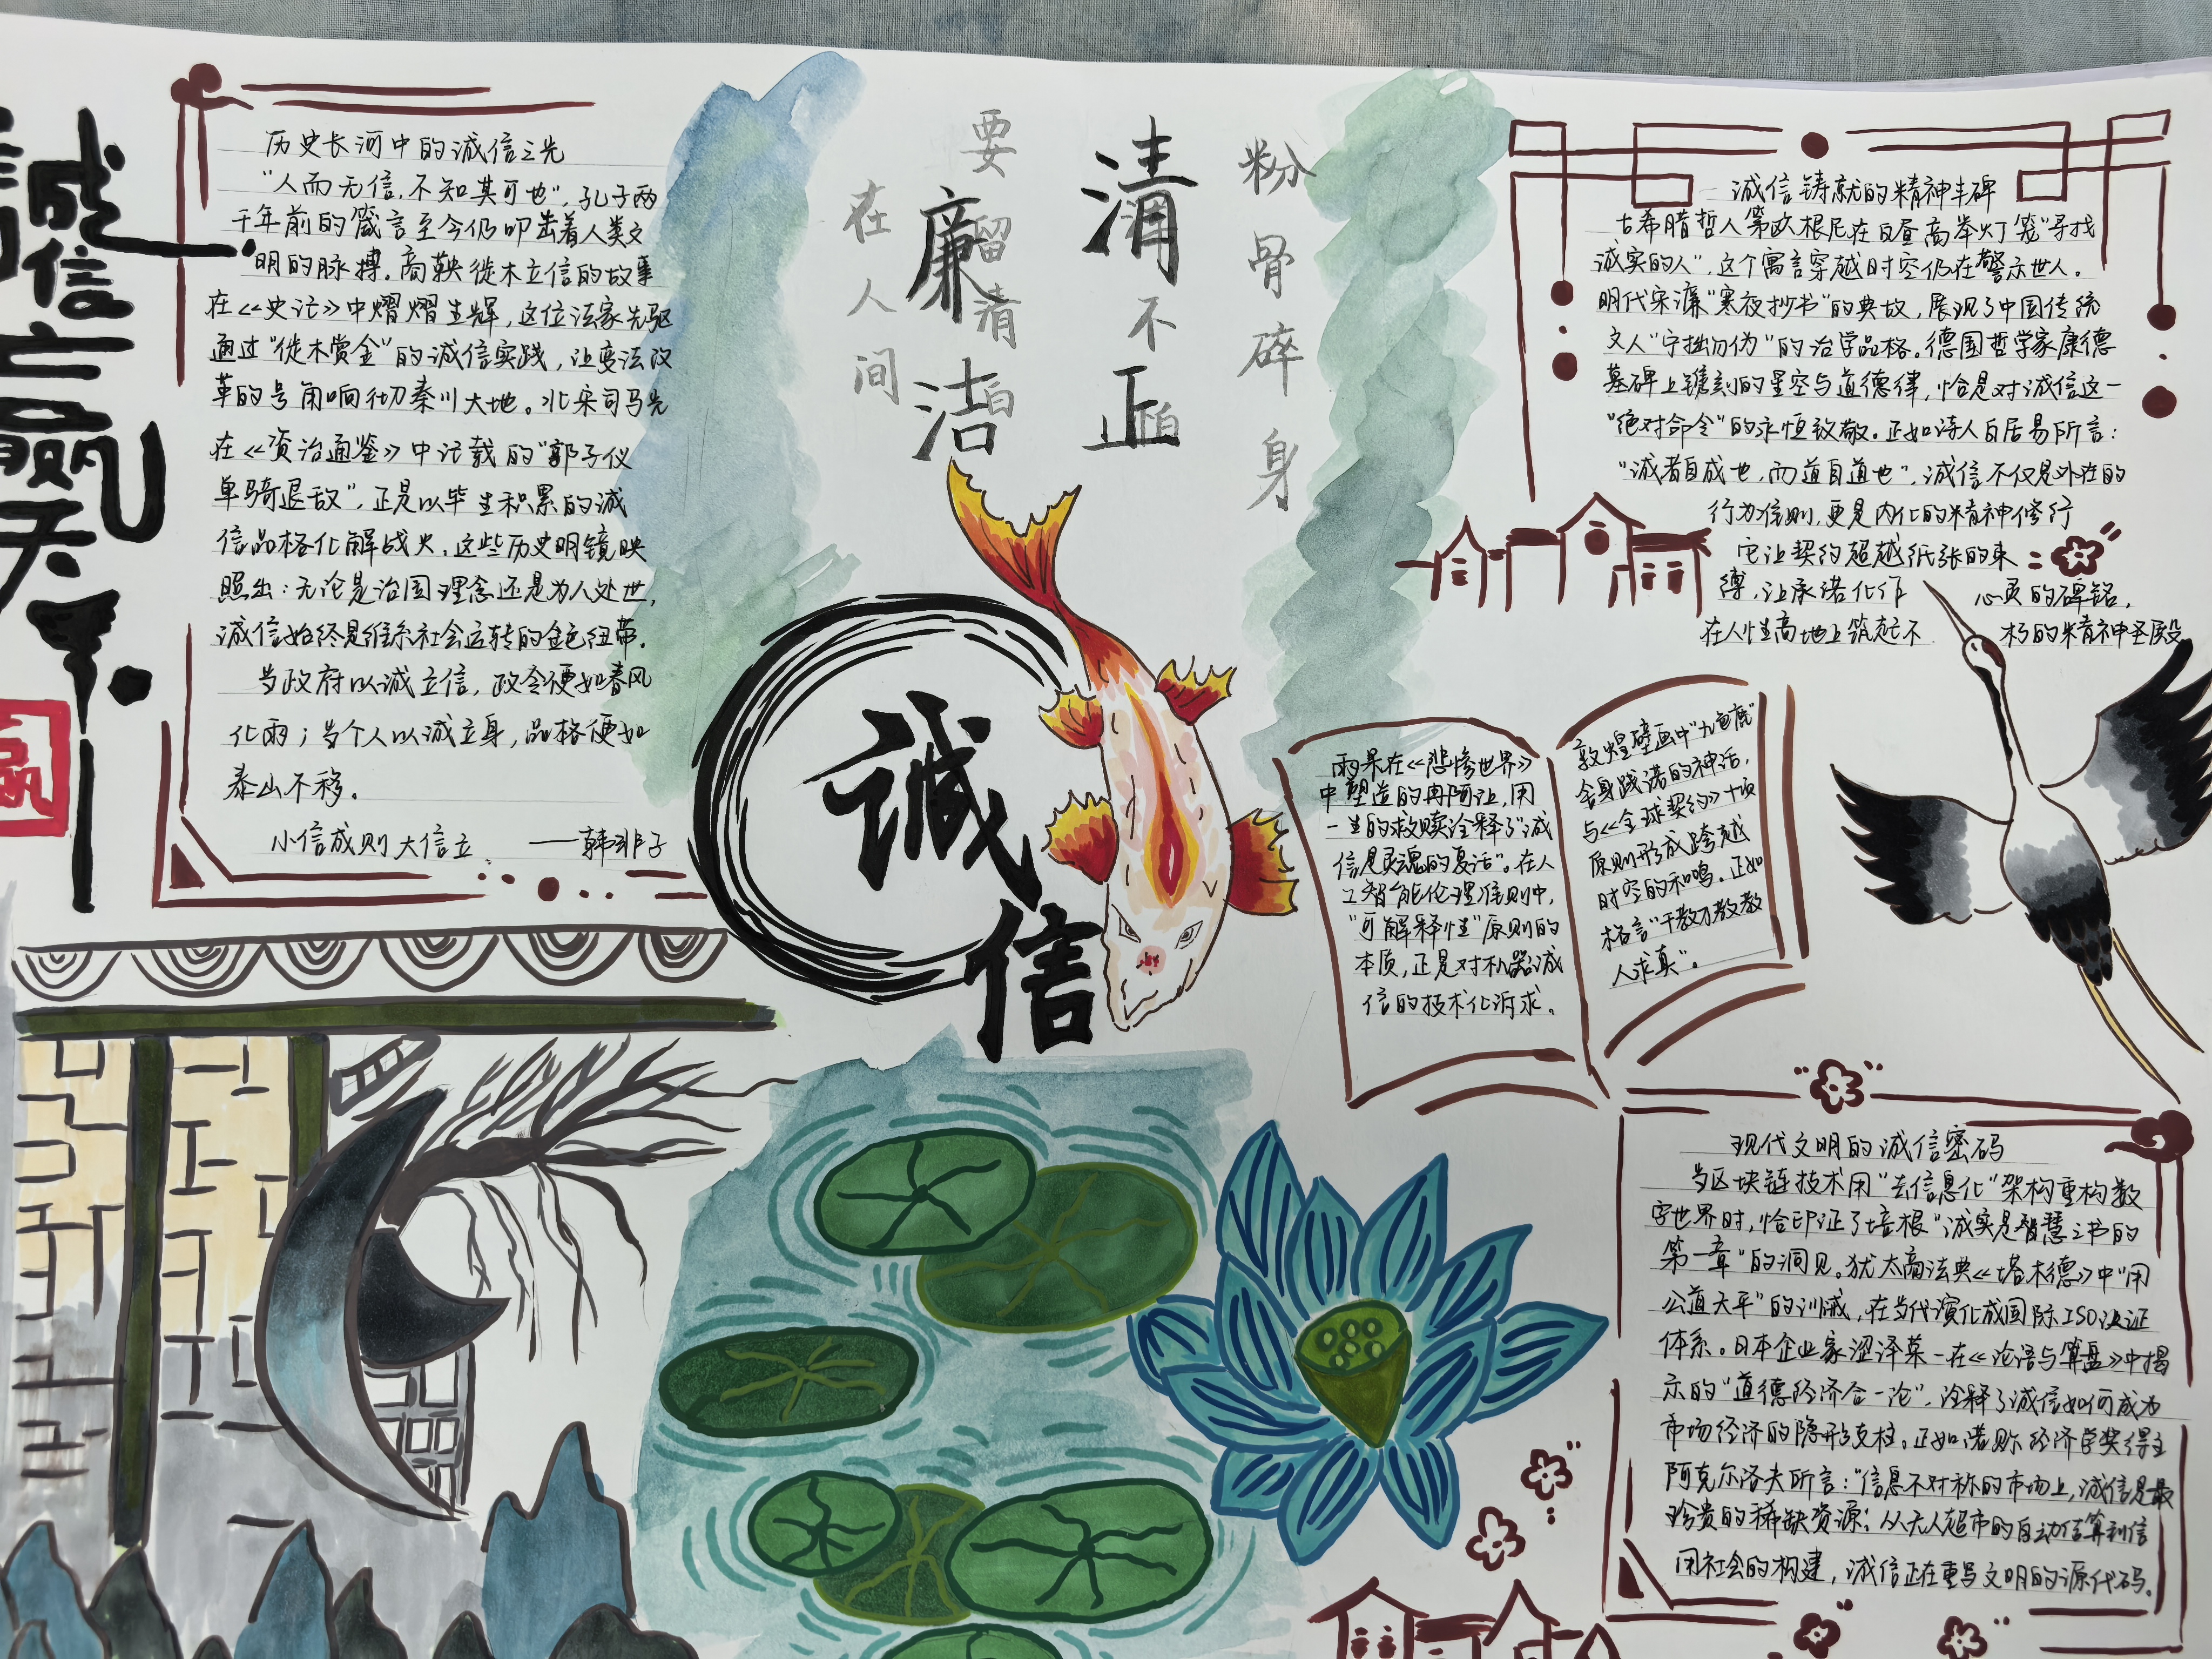 誠信
赢天下
赢
历史长河中的诚信之光
“人而无信,不知其可也”,孔子两
千年前的箴言至今仍叩击着人类文
明的脉搏。商鞅徙木立信的故事
在《史记》中熠熠生辉,这位法家先驱
通过“徙木赏金”的诚信实践,让变法改
革的号角响彻秦川大地。北宋司马光
在《资治通鉴》中记载的“郭子仪
单骑退敌”,正是以毕生积累的诚
信品格化解战火,这些历史明镜映
照出:无论是治国理念还是为人处世,
诚信始终是维系社会运转的金色纽带。
当政府以诚立信,政令便如春风
化雨;当个人以诚立身,品格便如
泰山不移。
小信成则大信立。 ——韩非子
清正
廉洁
粉骨碎身
不怕
要留清白
在人间
誠信
诚信铸就的精神丰碑
古希腊哲人第欧根尼在白昼高举灯笼“寻找
诚实的人”,这个寓言穿越时空仍在警示世人。
明代宋濂“寒夜抄书”的典故,展现了中国传统
文人“守拙勿伪”的治学品格。德国哲学家康德
墓碑上镌刻的星空与道德律,恰是对诚信这一
“绝对命令”的永恒致敬。正如诗人白居易所言:
“诚者自成也,而道自道也”,诚信不仅是外在的
行为信则,更是内化的精神修行
它让契约超越纸张的束
缚,让承诺化作 心灵的碑铭,
在人性高地上筑起不 朽的精神圣殿
雨果在《悲惨世界》
中塑造的冉阿让,用
一生的救赎诠释了“诚
信是灵魂的复活”。在人
工智能伦理信则中,
“可解释性”原则的
本质,正是对机器诚
信的技术化诉求。
敦煌壁画中“九色鹿”
舍身践诺的神话,
与《全球契约》十项
原则形成跨越
时空的和鸣。正如
格言“千教万教教
人求真”。
现代文明的诚信密码
当区块链技术用“去信息化”架构重构数
字世界时,恰印证了培根“诚实是智慧之书的
第一章”的洞见。犹太商法典《塔木德》中“用
公道天平”的训诫,在当代演化成国际ISO认证
体系。日本企业家涩泽荣一在《论语与算盘》中揭
示的“道德经济合一论”,诠释了诚信如何成为
市场经济的隐形支柱。正如诺贝尔经济学奖得主
阿克尔洛夫所言:“信息不对称的市场上,诚信是最
珍贵的稀缺资源”;从无人超市的自动结算到信
用社会的构建,诚信正在重写文明的源代码。